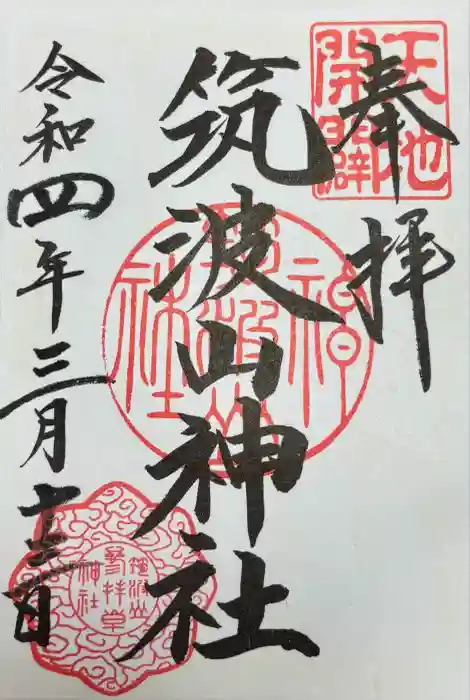 奉拝
天地
開闢
筑波山神社
令和四年三月十三日
筑波山
神社